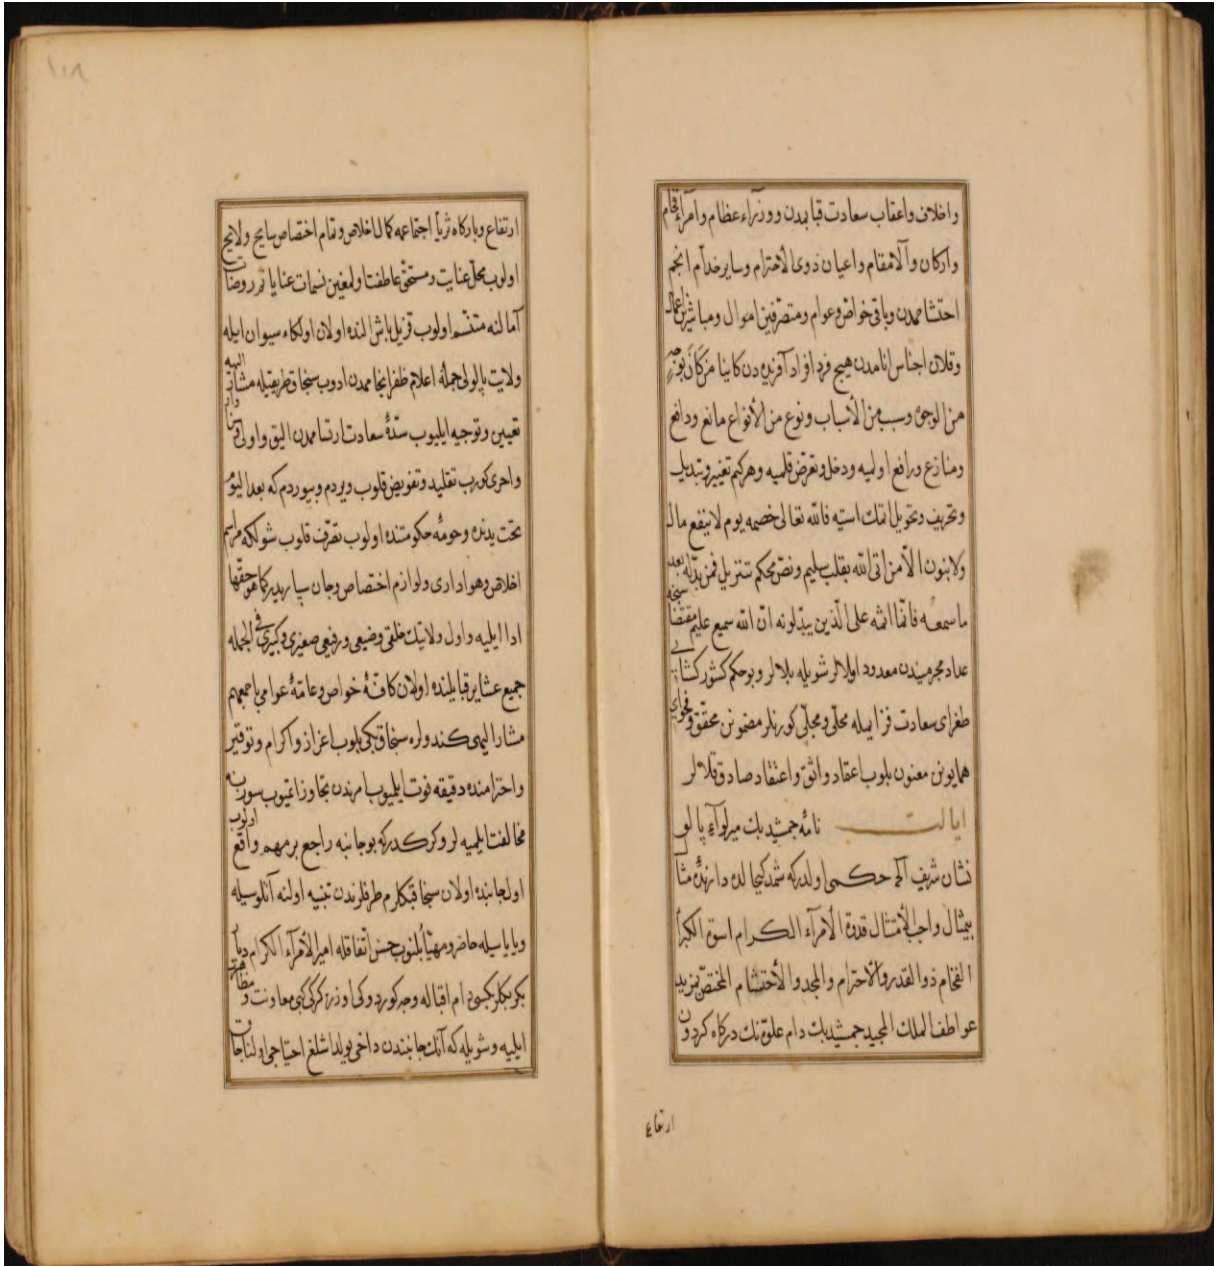 واخلاف واعقاب سعادت قبابمدن ووزراء عظام وامراء فخام
واركان وآلامقام واعيان ذوى الاحترام وساير خدام انجم
احتشاممدن وباقى خواص وعوام ومتصرفين اموال ومباشرين اعمال
وقلان اجناس انامدن هيچ فرد افراد آفريده دن كاينا من كان بوجه
من الوجوه وسبب من الأسباب ونوع من الأنواع مانع ودافع
ومنازع ورافع اولميه ودخل وتعرض قلميه وهركيم تغيير وتبديل
وتحريف وتحويل اتمك استيه فالله تعالى خصمه يوم لا ينفع مال
ولا بنون الّا من اتى الله بقلب سليم ونصّ محكم تنزيل فمن بدّله بعد
ما سمعه فانّما اثمه على الّذين يبدّلونه انّ الله سميع عليم مقتضاسنجه
عداد مجرميندن معدود اولالر شويله بلالر وبو حكم كشور كشايى
طغراى سعادت فزايله محلّى ومجلّى كورنلر مضمونن محقّق وفحواى
همايونن معنون بلوب اعتماد واثق واعتقاد صادق قلالر
ايالت نامهٔ جمشيد بك ميرلواء پالو
نشان شريف آلى حكمى اولدركه شمديكيحالده دارندهٔ مثال
بيمثال واجب الأمتثال قدوة الأمرآء الكرام اسوة الكبرآ
الفخام ذوالقدر والاحترام والمجد والأحتشام المختصّ بمزيد
عواطف الملك المجيد جمشيد بك دام علوّه نك دركاه كردون
ارتفاع
ارتفاع وباركاه ثريا اجتماعمه كمال اخلاص وتمام اختصاص سايح ولايح
اولوب محلّ عنايت ومستحق عاطفت اولمغين نسمات عناياتم روضات
آمالنه متنسّم اولوب قزيل باش النده اولان اولكاء سيوان ايله
ولايت پالو لى جملهٔ اعلام ظفر انجاممدن ادوب سنجاق طريقيله مشار اليهه
تعيين وتوجيه ايليوب سدّهٔ سعادت ارتساممدن اليق واولى
واحرى كورب تقليد وتفويض قلوب ويردم وبيوردم كه بعد اليوم
تحت يدنده وحومهٔ حكومتنده اولوب تصرّف قلوب شولكه مراسم
اخلاص وهوادارى ولوازم اختصاص وجان سپاريدر كما هو حقّها
ادا ايليه واول ولايتك خلقى وضيعى ورفيعى صغيرى وكبيرى فى الجمله
جميع عشاير قبايلنده اولان كافّهٔ خواص وعامّهٔ عوامى باجمعهم
مشار اليهى كندولره سنجاق بكى بلوب اعزاز واكرام وتوقير
واحترامنده دقيقه فوت ايليوب امرندن تجاوز اتميوب سوزنه
مخالفت ايلميه لر وكركدركه بو جانبه راجع بر مهم واقع اولوب
اول جانبده اولان سنجاقبكلرم طرفلرندن تنبيه اولنه آتلوسيله
وياياسيله حاضر ومهيّا بلنوب حسن اتفاقله امير الأمرآء الكرام ديار
بكر بكلربكيسى دام اقباله وجه كوردوكى اوزره كركى كبى معاونت ومظاهرت
ايليه وشويله كه آنك جانبندن داخى يولداشلغه احتياجى اولنا جانب